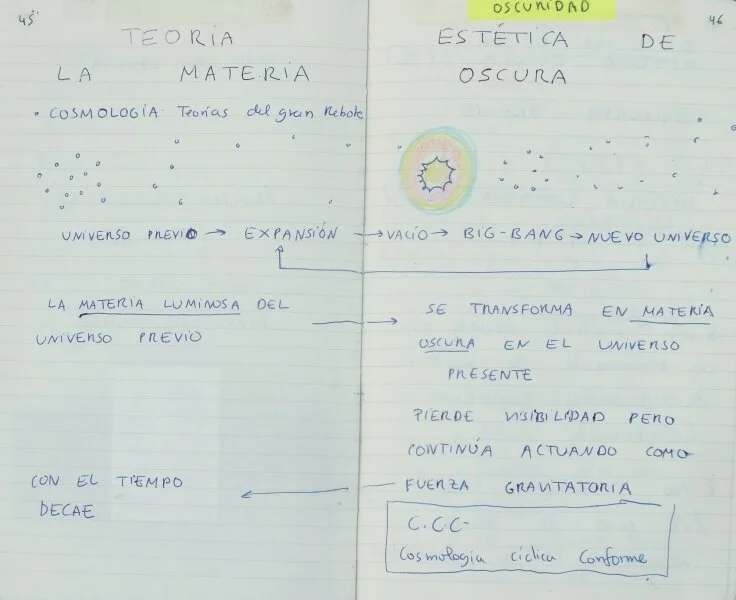 45
46
OSCURIDAD
TEORIA ESTÉTICA DE
LA MATERIA OSCURA
• COSMOLOGÍA: Teorías del gran Rebote
UNIVERSO PREVIO → EXPANSIÓN → VACÍO → BIG-BANG → NUEVO UNIVERSO
LA MATERIA LUMINOSA DEL
UNIVERSO PREVIO
SE TRANSFORMA EN MATERIA
OSCURA EN EL UNIVERSO
PRESENTE
PIERDE VISIBILIDAD PERO
CONTINÚA ACTUANDO COMO
FUERZA GRAVITATORIA
CON EL TIEMPO
DECAE
C.C.C-
Cosmologia cíclica Conforme